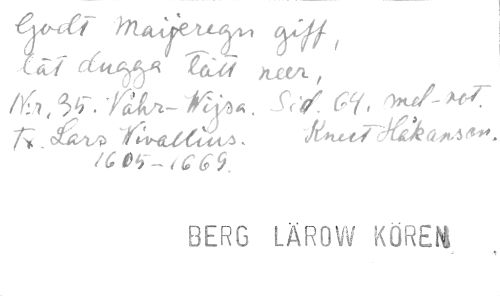 Godt Maijeregn giff,
låt dugga tått neer,
N:r, 35. Våhr-Wijsa. Sid. 64. mel-rot.
Tx. Lars Wivallius. Knut Håkanson.
1605-1669.
BERG LÄROW KÖREN